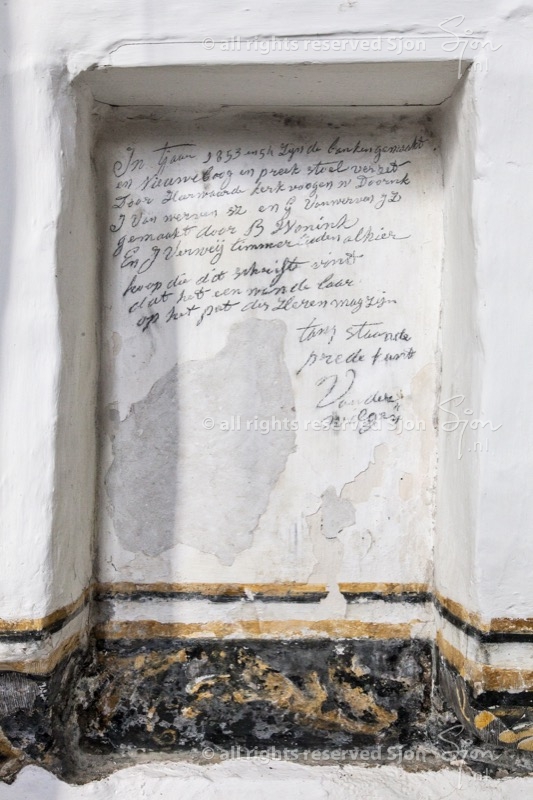 © all rights reserved Sjon
Sjon.nl
In tjaar 1853 en 54 Zijn de banken gemaakt
en Nieuwe boog en preek stoel verzet
Door Heerwaarde kerkvoogen W Doornk
J Van werven sz en G Vanwerven JZ
gemaakt door B Nonink
En J Verweij timmer Lieden alhier
hoop die dit schrift vint
dat het een winde laar
op het pat des Heren mag Zijn
tans staande
prede kant
Van der
© all rights reserved Sjon
Sjon.nl
© all rights reserved Sjon